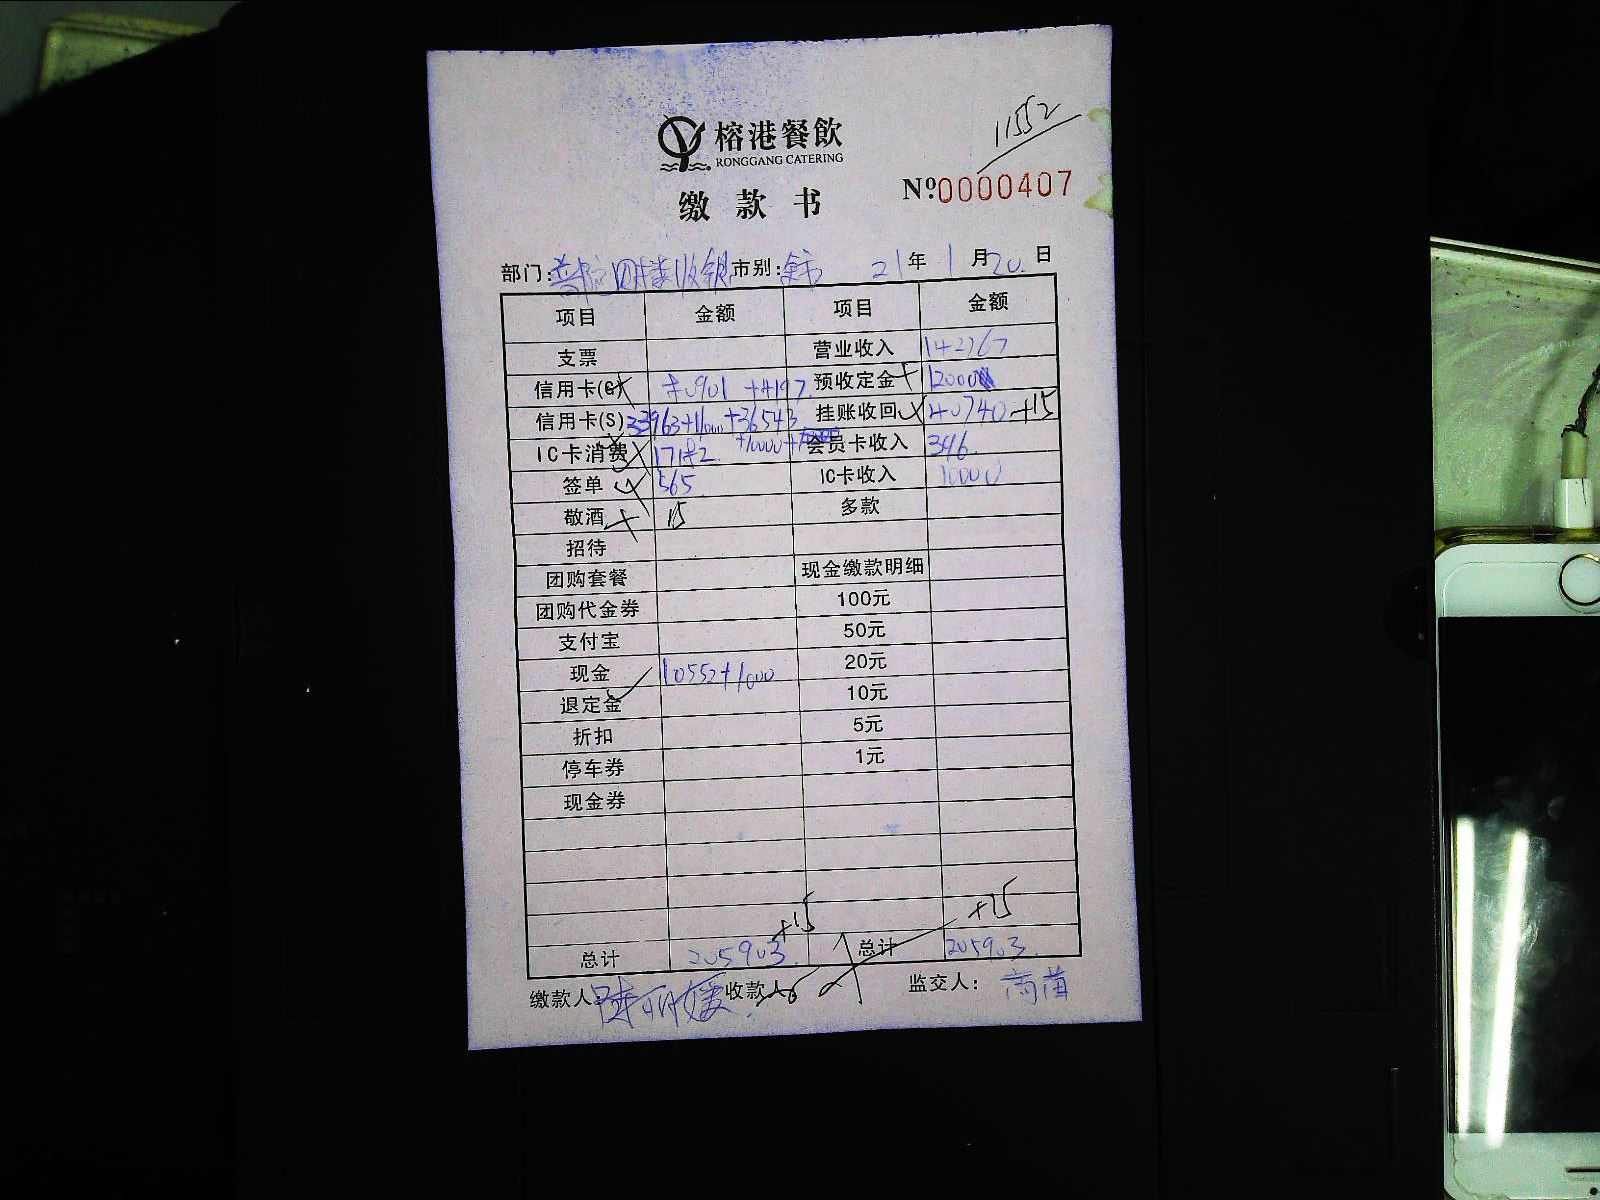 11552
榕港餐飲
RONGGANG CATERING
缴款书 №0000407
部门: 四楼收银 市别: 21年1月20日
项目 金额 项目 金额
支票 营业收入 142767
信用卡(G) +4197 预收定金 12000
信用卡(S) 33963+11000+36543 挂账收回 40740+15
IC卡消费 +10000 会员卡收入 396
签单 565 IC卡收入 10000
敬酒 15 多款
招待
团购套餐 现金缴款明细
团购代金券 100元
支付宝 50元
现金 10552+1000 20元
退定金 10元
折扣 5元
停车券 1元
现金券
+15 +15
总计 205903 总计 205903
缴款人: 陆丽媛 收款人: 监交人: